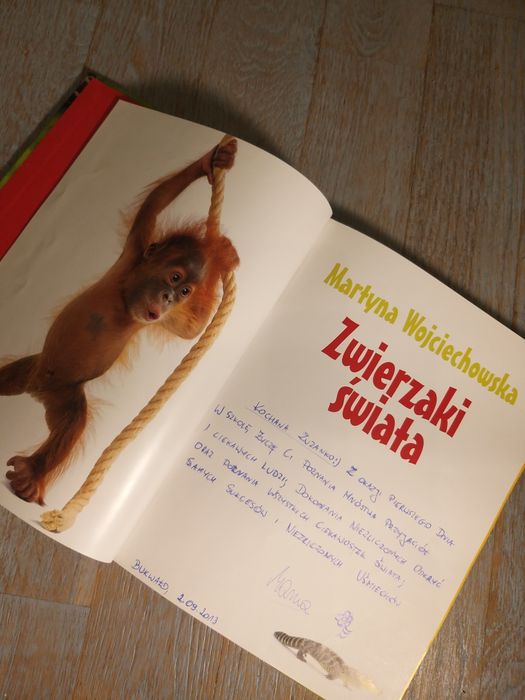 Martyna Wojciechowska
Zwierzaki
świata
KOCHANA ZUZANKO! Z OKAZJI PIERWSZEGO DNIA
W SZKOLE ŻYCZĘ CI POZNANIA MNÓSTWA PRZYJACIÓŁ
I CIEKAWYCH LUDZI, DOKONANIA NIEZLICZONYCH ODKRYĆ
ORAZ POZNANIA WSZYSTKICH CIEKAWOSTEK ŚWIATA,
SAMYCH SUKCESÓW I NIEZLICZONYCH UŚMIECHÓW
Mama
BUKWAŁD, 2.09.2013